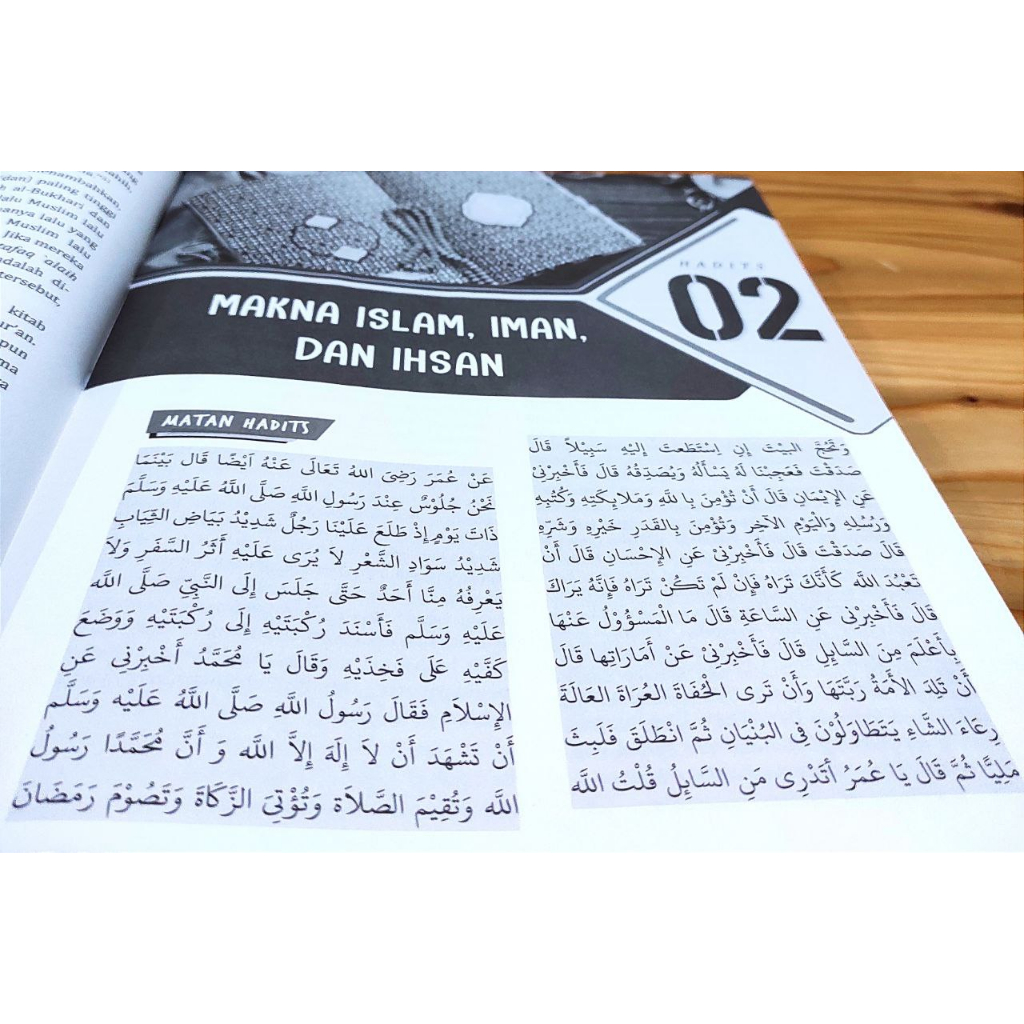 nambahkan,
(dan) paling tinggi
h al-Bukhari dan
lalu Muslim lalu
anya lalu yang
Muslim lalu
Jika mereka
afaq 'alaih
adalah di-
tersebut,
kitab
ur'an.
pun
ma
ta
HADITS
02
MAKNA ISLAM, IMAN,
DAN IHSAN
MATAN HADITS
عَنْ عُمَرَ رَضِىَ اللهُ تَعَالَى عَنْهُ اَيْضًا قَال بَيْنَمَا
نَحْنُ جُلُوْسٌ عِنْدَ رَسُولِ اللهِ صَلَّى اللهُ عَلَيْهِ وَسَلَّمَ
ذَاتَ يَوْمٍ إِذْ طَلَعَ عَلَيْنَا رَجُلٌ شَدِيْدُ بَيَاضِ الثِّيَابِ
شَدِيْدُ سَوَادِ الشَّعْرِ لاَ يُرَى عَلَيْهِ أَثَرُ السَّفَرِ وَلاَ
يَعْرِفُهُ مِنَّا أَحَدٌ حَتَّى جَلَسَ إِلَى النَّبِيِّ صَلَّى اللَّه
عَلَيْهِ وَسَلَّم فَأَسْنَدَ رُكْبَتَيْهِ إِلَى رُكْبَتَيْهِ وَوَضَعَ
كَفَّيْهِ عَلَى فَخِذَيْهِ وَقَالَ يَا مُحَمَّدُ أَخْبِرْنِى عَنِ
الإِسْلاَمِ فَقَالَ رَسُولُ اللَّهِ صَلَّى اللَّهُ عَلَيْه وَسَلَّم
أَنْ تَشْهَدَ أَنْ لاَ إِلَهَ إِلاَّ اللَّه وَ أَنَّ مُحَمَّدًا رَسُولُ
اللَّه وَتُقِيْمَ الصَّلاَة وَتُؤْتِىَ الزَّكَاةَ وَتَصُوْمَ رَمَضَانَ
وَتَحُجَّ البَيْتَ إِنِ اِسْتَطَعتَ إِلَيْهِ سَبِيْلاً قَالَ
صَدَقْتَ فَعَجِبْنَا لَهُ يَسأَلُهُ وَيُصَدِقُهُ قَالَ فَأَخْبِرْنِىْ
عَنِ الإِيْمَانِ قَالَ أَنْ تُؤْمِنَ بِاللهِ وَمَلاَئِكَتِهِ وَكُتُبِهِ
وَرُسُلِهِ وَالْيَوْمِ الآخِرِ وَتُؤْمِنَ بِالقَدَرِ خَيْرِهِ وَشَرِّهِ
قَالَ صَدَقْتَ قَالَ فَأَخْبِرْنِىْ عَنِ الإِحْسَانِ قَالَ أَنْ
تَعْبُدَ اللَّه كَأَنَّكَ تَرَاهُ فَإِنْ لَمْ تَكُنْ تَرَاهُ فَإِنَّهُ يَرَاكَ
قَالَ فَأَخْبِرْنِى عَنِ السَّاعَةِ قَالَ مَا الْمَسْؤُوْلُ عَنْهَا
بِأَعْلَمَ مِنَ السَّائِلِ قَالَ فَأَخْبِرْنِىْ عَنْ أَمَارَاتِها قَالَ
أَنْ تَلِدَ الأَمَةُ رَبَّتَهَا وَأَنْ تَرى الْحُفَاةَ العُرَاةَ العَالَةَ
رِعَاءَ الشَّاءِ يَتَطَاوَلُوْنَ فِى البُنْيَانِ ثُمَّ انْطَلَقَ فَلَبِثَ
مَلِيًّا ثُمَّ قَالَ يَا عُمَرُ أَتَدْرِى مَنِ السَّائِلُ قُلْتُ اللَّه